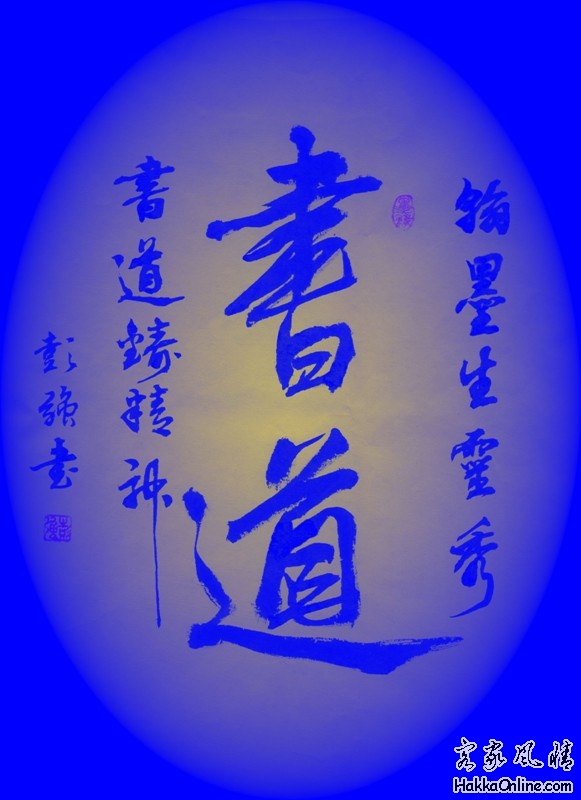 翰墨生靈秀
書道
書道鑄精神
彭强書
客家風情
HakkaOnline.com